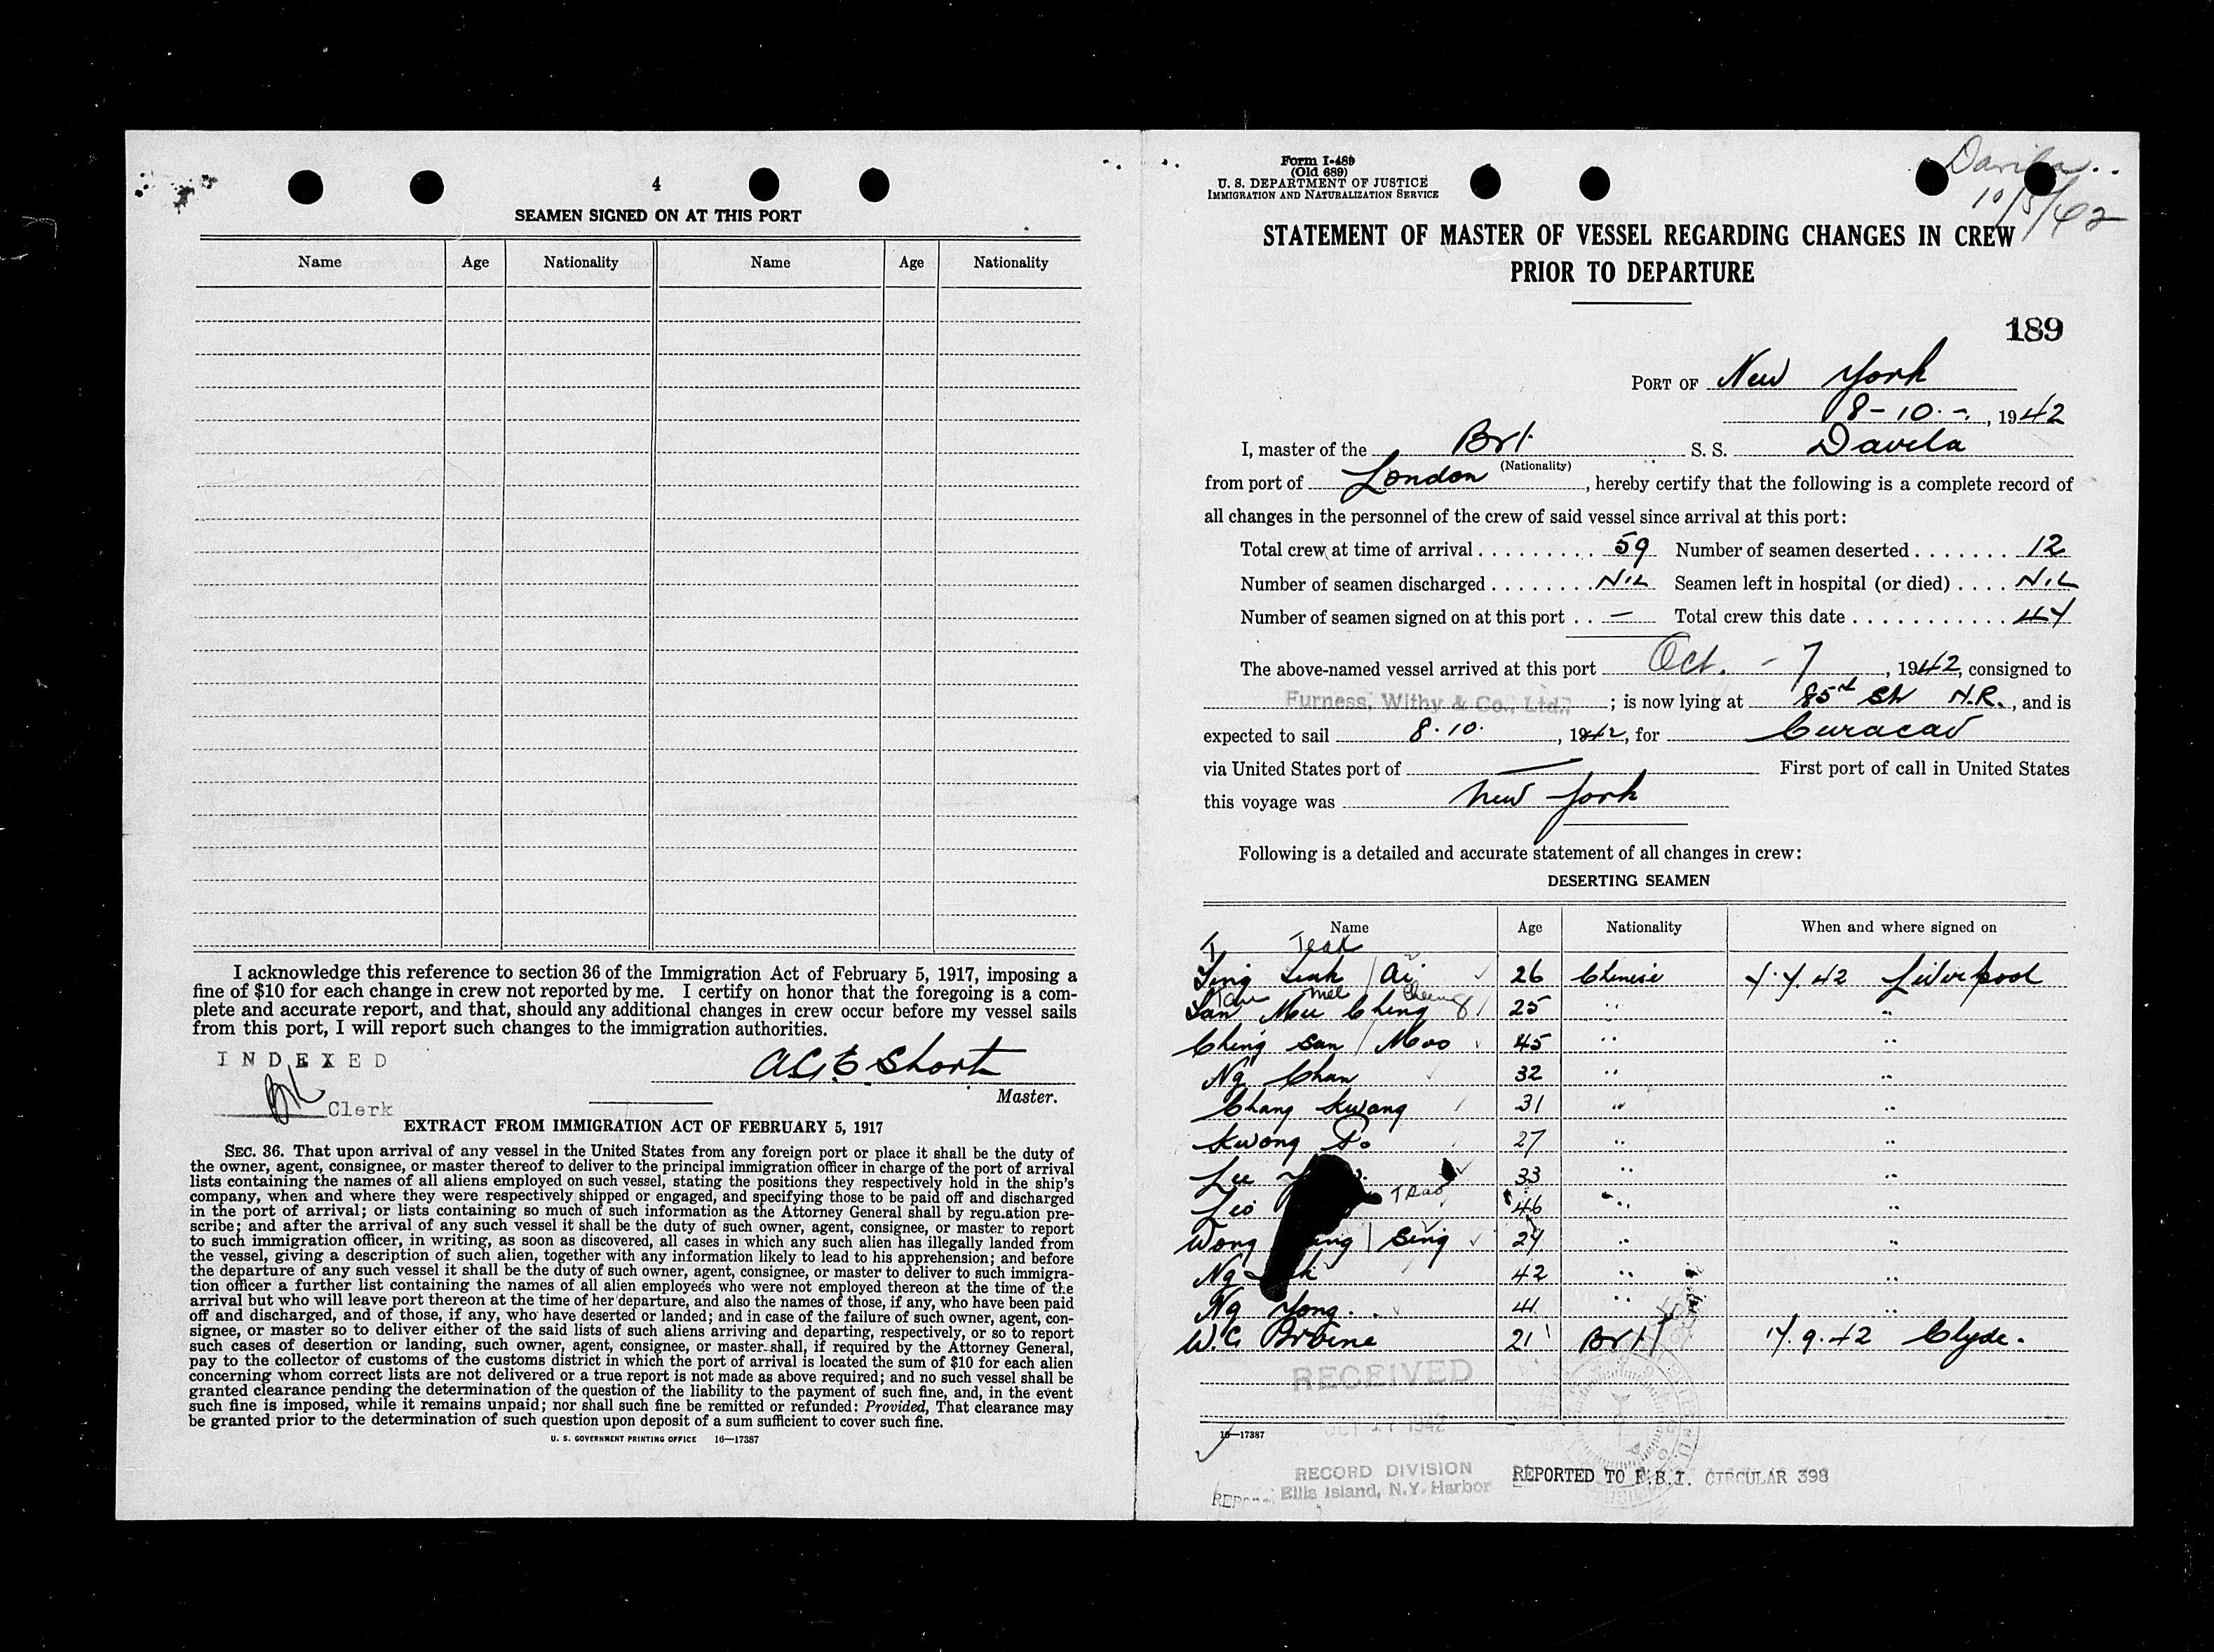 4
SEAMEN SIGNED ON AT THIS PORT
Name Age Nationality Name Age Nationality
I acknowledge this reference to section 36 of the Immigration Act of February 5, 1917, imposing a
fine of $10 for each change in crew not reported by me. I certify on honor that the foregoing is a com-
plete and accurate report, and that, should any additional changes in crew occur before my vessel sails
from this port, I will report such changes to the immigration authorities.
INDEXED
Clerk
A.C.E. Short
Master.
EXTRACT FROM IMMIGRATION ACT OF FEBRUARY 5, 1917
SEC. 36. That upon arrival of any vessel in the United States from any foreign port or place it shall be the duty of
the owner, agent, consignee, or master thereof to deliver to the principal immigration officer in charge of the port of arrival
lists containing the names of all aliens employed on such vessel, stating the positions they respectively hold in the ship's
company, when and where they were respectively shipped or engaged, and specifying those to be paid off and discharged
in the port of arrival; or lists containing so much of such information as the Attorney General shall by regulation pre-
scribe; and after the arrival of any such vessel it shall be the duty of such owner, agent, consignee, or master to report
to such immigration officer, in writing, as soon as discovered, all cases in which any such alien has illegally landed from
the vessel, giving a description of such alien, together with any information likely to lead to his apprehension; and before
the departure of any such vessel it shall be the duty of such owner, agent, consignee, or master to deliver to such immigra-
tion officer a further list containing the names of all alien employees who were not employed thereon at the time of the
arrival but who will leave port thereon at the time of her departure, and also the names of those, if any, who have been paid
off and discharged, and of those, if any, who have deserted or landed; and in case of the failure of such owner, agent, con-
signee, or master so to deliver either of the said lists of such aliens arriving and departing, respectively, or so to report
such cases of desertion or landing, such owner, agent, consignee, or master shall, if required by the Attorney General,
pay to the collector of customs of the customs district in which the port of arrival is located the sum of $10 for each alien
concerning whom correct lists are not delivered or a true report is not made as above required; and no such vessel shall be
granted clearance pending the determination of the question of the liability to the payment of such fine, and, in the event
such fine is imposed, while it remains unpaid; nor shall such fine be remitted or refunded: Provided, That clearance may
be granted prior to the determination of such question upon deposit of a sum sufficient to cover such fine.
U. S. GOVERNMENT PRINTING OFFICE 16—17387
Form I-489
(Old 689)
U. S. DEPARTMENT OF JUSTICE
IMMIGRATION AND NATURALIZATION SERVICE
Davila
10/5/42
STATEMENT OF MASTER OF VESSEL REGARDING CHANGES IN CREW
PRIOR TO DEPARTURE
189
PORT OF New York
8-10-, 1942
I, master of the Brt S. S. Davila
(Nationality)
from port of London, hereby certify that the following is a complete record of
all changes in the personnel of the crew of said vessel since arrival at this port:
Total crew at time of arrival......... 59 Number of seamen deserted....... 12
Number of seamen discharged........ Nil Seamen left in hospital (or died).... Nil
Number of seamen signed on at this port.. — Total crew this date............ 47
The above-named vessel arrived at this port Oct. - 7, 1942, consigned to
Furness, Withy & Co., Ltd.; is now lying at 85th St N.R., and is
expected to sail 8.10., 1942, for Curacao
via United States port of — First port of call in United States
this voyage was New York
Following is a detailed and accurate statement of all changes in crew:
DESERTING SEAMEN
Name Age Nationality When and where signed on
T Teak
Ling Leak / Ai 26 Chinese 7.7.42 Liverpool
Mel Cheung
Lan Mee Ching 25 " "
Ching San / Moo 45 " "
Ng Chan 32 " "
Chang Kwang 31 " "
Kwong Po 27 " "
Lee 33 " "
Leo 46 " "
Wong Sing 24 " "
Ng 42 " "
Ng Yong. 41 " "
W.C. 21 Brit 17.9.42 Clyde.
RECEIVED
OCT 17 1942
16—17387
RECORD DIVISION
Ellis Island, N.Y. Harbor
REPORTED TO F.B.I. CIRCULAR 398